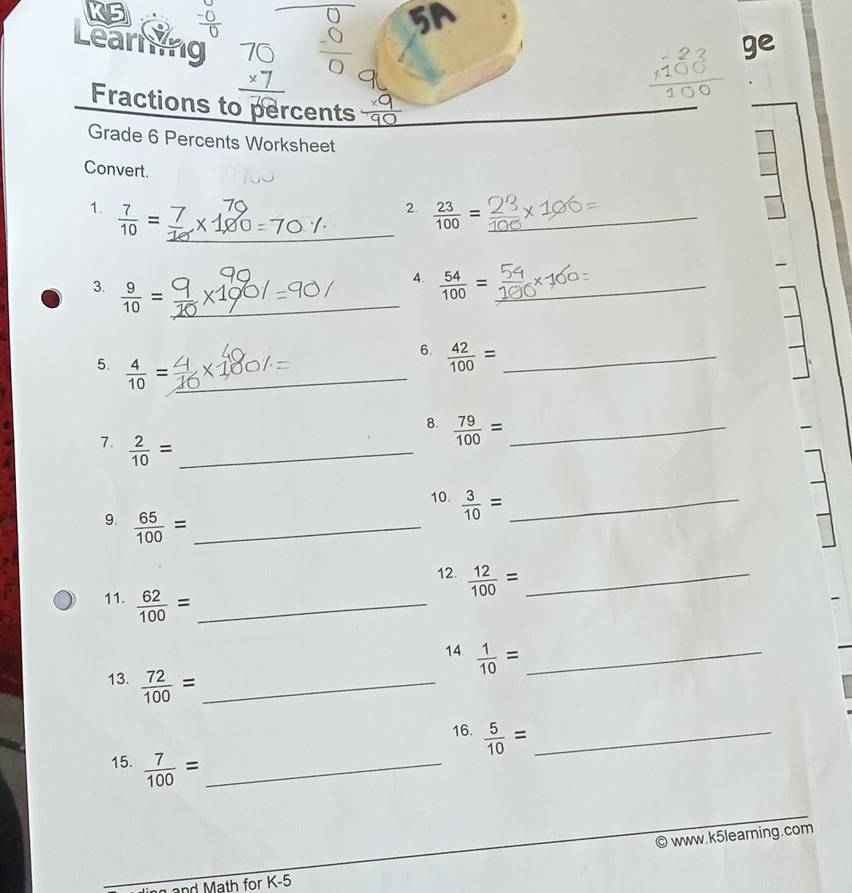 K5
Learning
-0
0
0
-0
0
5A
ge
70
×7
9
×9
90
23
×100
100
Fractions to percents
Grade 6 Percents Worksheet
Convert.
1. 7/10 = 7/10 × 100 = 70 % 70
2. 23/100 = 23/100 × 100 =
3. 9/10 = 9/10 × 100% = 90% 90
4. 54/100 = 54/100 × 100 =
5. 4/10 = 4/10 × 100% = 40
6. 42/100 =
7. 2/10 =
8. 79/100 =
9. 65/100 =
10. 3/10 =
11. 62/100 =
12. 12/100 =
13. 72/100 =
14. 1/10 =
15. 7/100 =
16. 5/10 =
© www.k5learning.com
and Math for K-5